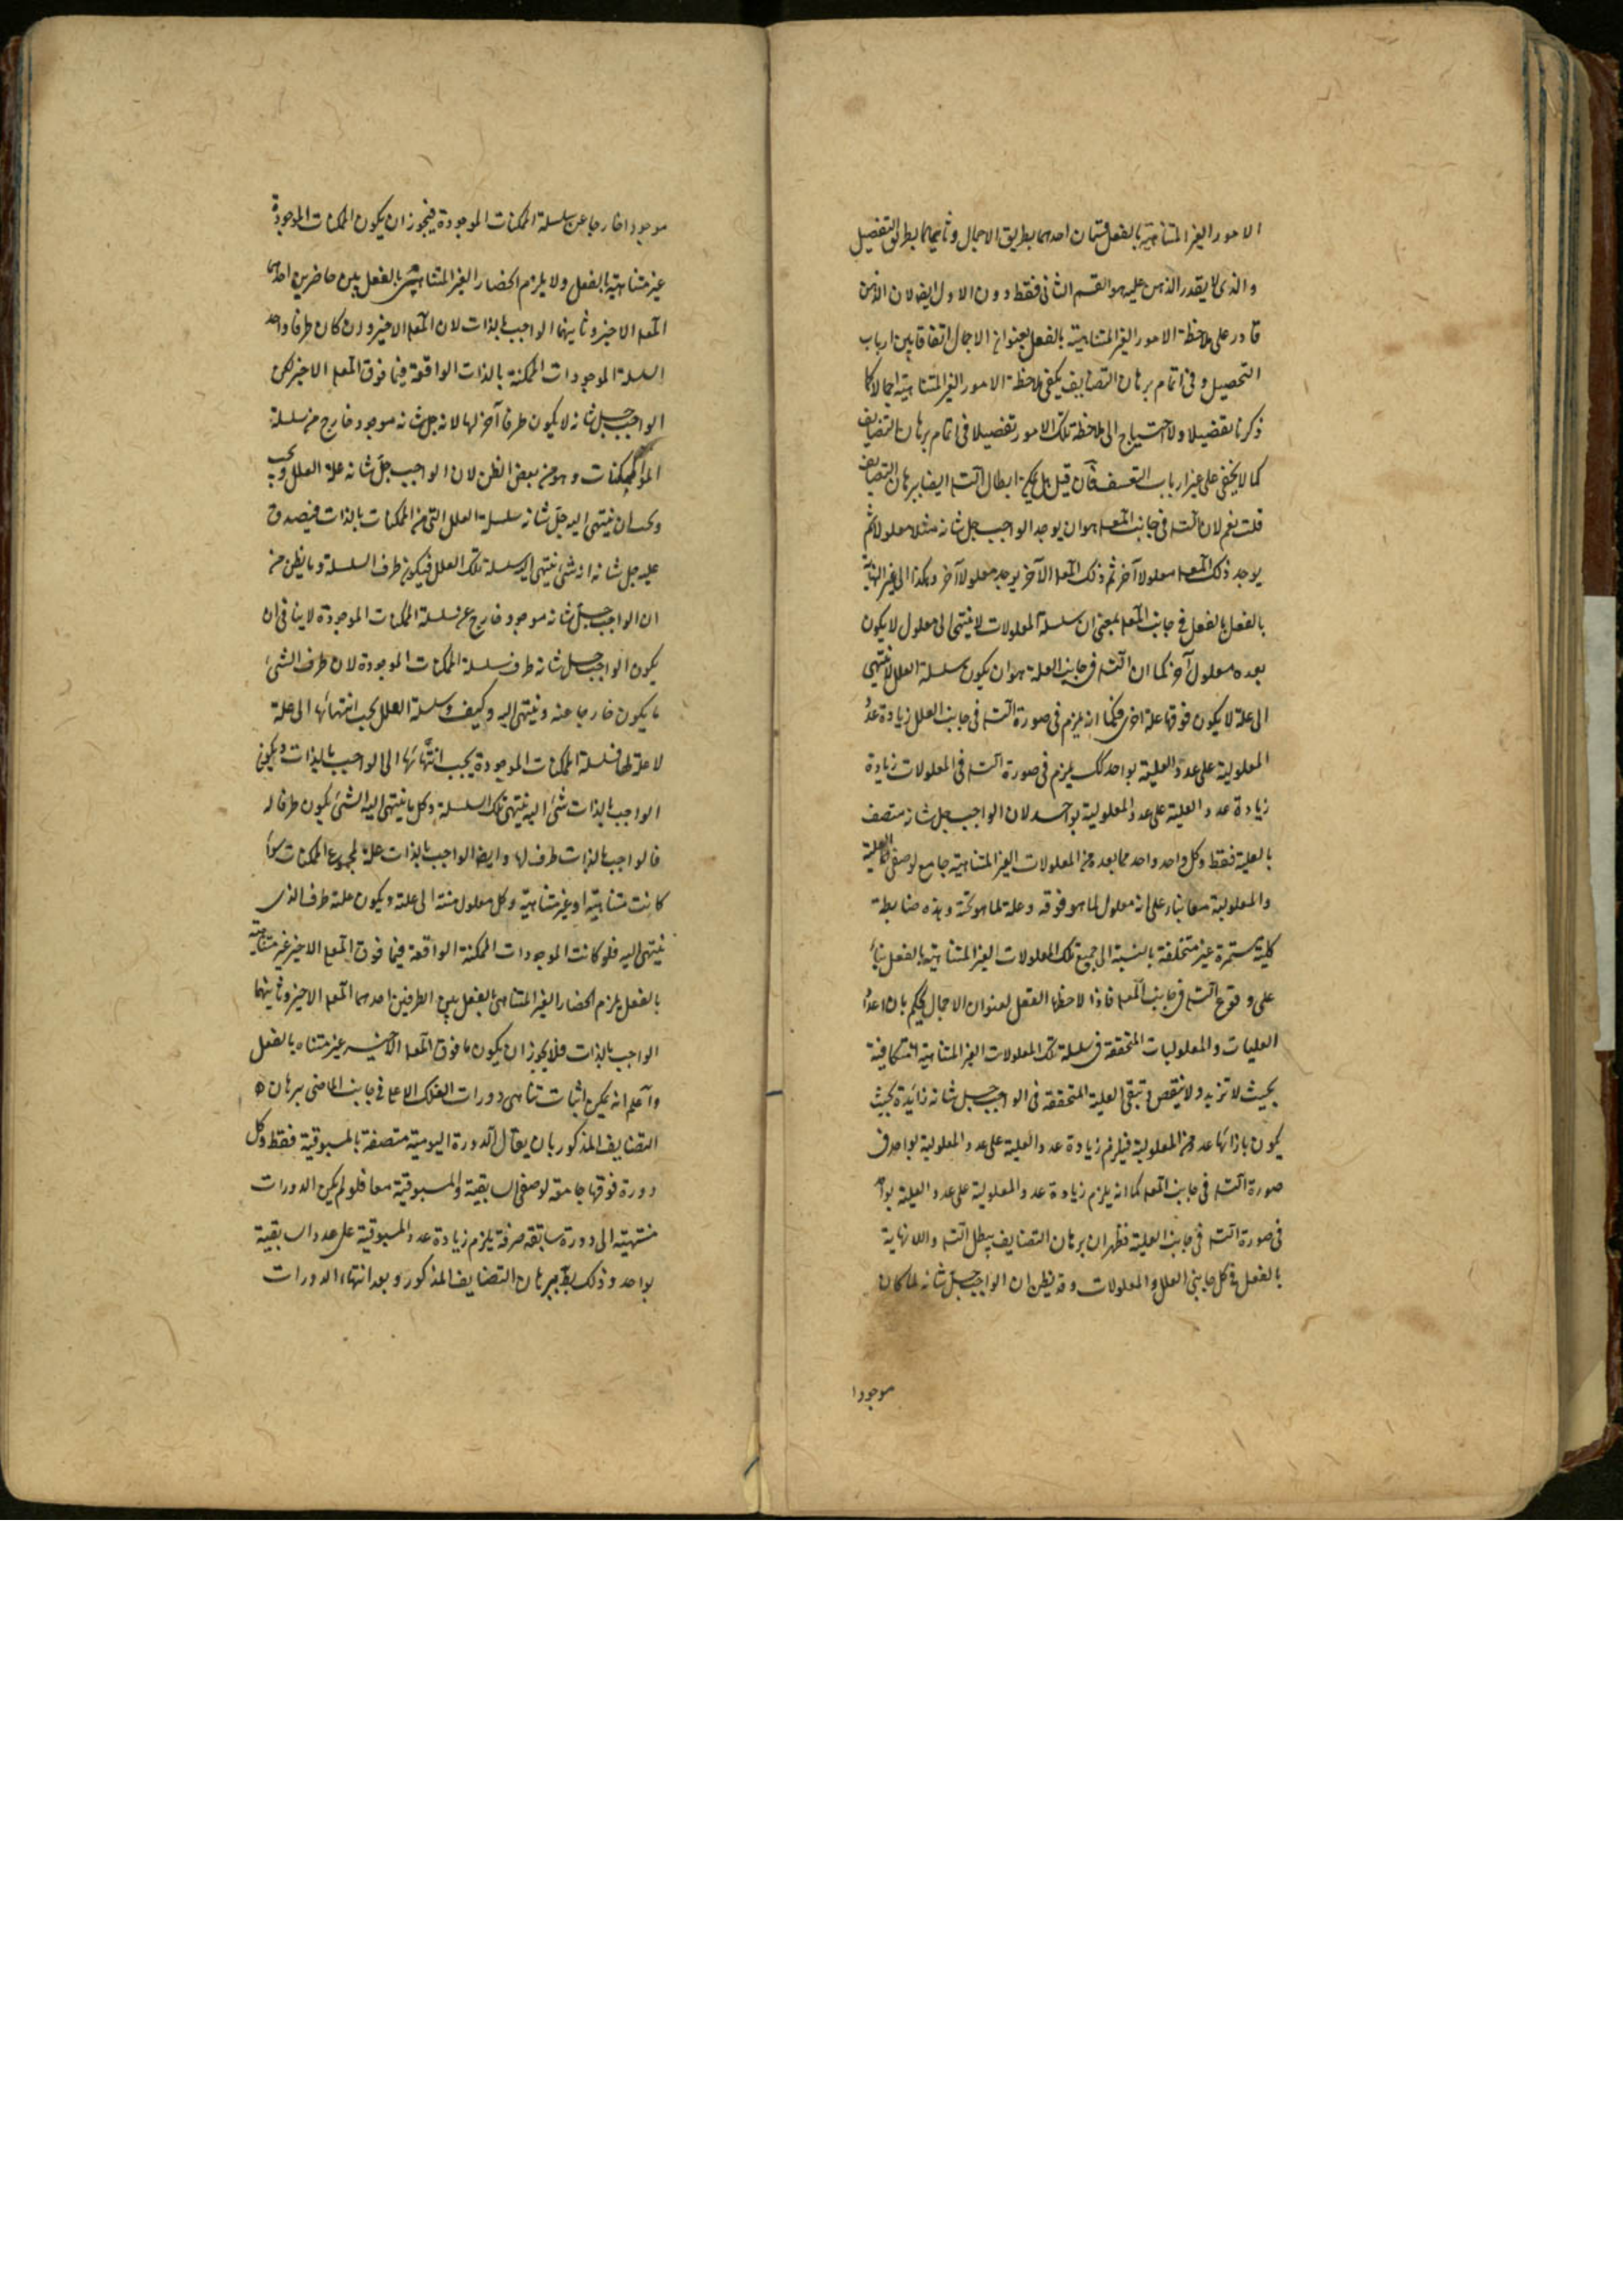 الامور الغير المتناهية بالفعل قسمان احدهما بطريق الاجمال وثانيهما بطريق التفصيل
والذى لا يقدر الذهن عليه هو القسم الثانى فقط دون الاول ايضا لان الذهن
قادر على ملاحظة الامور الغير المتناهية بالفعل بعنوان الاجمال اتفاقا بين ارباب
التحصيل وفى اتمام برهان التضايف يكفى ملاحظة الامور الغير المتناهية اجمالا كما
ذكرنا تفصيلا ولا احتياج الى ملاحظة تلك الامور تفصيلا فى اتمام برهان التضايف
كما لا يخفى على غير ارباب التعسف فآن قيل هل يمكن ابطال التسلسل ايضا ببرهان التضايف
قلت نعم لان التسلسل فى جانب المعلول هو ان يوجد الواجب جل شانه مثلا معلولا ثم
يوجد ذلك المعلول معلولا آخر ثم ذلك المعلول الآخر يوجد معلولا آخر وهكذا الى غير النهاية
بالفعل بالفعل فى جانب المعلول بمعنى ان سلسلة المعلولات لا ينتهى الى معلول لا يكون
بعده معلول آخر كما ان التسلسل فى جانب العلة هو ان يكون سلسلة العلل لا ينتهى
الى علة لا يكون فوقها علة اخرى فكما انه يلزم فى صورة التسلسل فى جانب العلل زيادة عدد
المعلولية على عدد العلية بواحد كك يلزم فى صورة التسلسل فى المعلولات زيادة
زيادة عدد العلية على عدد المعلولية بواحد لان الواجب جل شانه متصف
بالعلية فقط وكل واحد واحد مما بعده من المعلولات الغير المتناهية جامع لوصفى العلية
والمعلولية معا بناء على انه معلول لما هو فوقه وعلة لما هو تحته وهذه ضابطة
كلية مستمرة غير متخلفة بالنسبة الى جميع تلك المعلولات الغير المتناهية بالفعل بناء
على وقوع التسلسل فى جانب المعلول فاذا لاحظها العقل بعنوان الاجمال يحكم بان اعداد
العليات والمعلوليات المتحققة فى سلسلة تلك المعلولات الغير المتناهية متكافية
بحيث لا تزيد ولا ينقص وتبقى العلية المتحققة فى الواجب جل شانه زائدة بحيث
يكون بازائها عدد من المعلولية فيلزم زيادة عدد العلية على عدد المعلولية بواحد فى
صورة التسلسل فى جانب المعلول كما انه يلزم زيادة عدد المعلولية على عدد العلية بواحد
فى صورة التسلسل فى جانب العلية فظهر ان برهان التضايف يبطل التسلسل واللانهاية
بالفعل فى كل جانبى العلل والمعلولات وقد يظن ان الواجب جل شانه لما كان
موجودا
موجودا خارجا عن سلسلة الممكنات الموجودة فيجوز ان يكون الممكنات الموجودة
غير متناهية بالفعل ولا يلزم انحصار الغير المتناهى بالفعل بين حاضرين احدهما
المعلول الاخير وثانيهما الواجب بالذات لان المعلول الاخير وان كان طرفا واحد
السلسلة الموجودات الممكنة بالذات الواقعة فيما فوق المعلول الاخير لكن
الواجب جل شانه لا يكون طرفا آخر لها لانه جل شانه موجود خارج من سلسلة
الممكنات وهو من بعض الظن لان الواجب جل شانه علة العلل ويجب
وتحب ان ينتهى اليه جل شانه سلسلة العلل التى من الممكنات بالذات فيصدق
عليه جل شانه انه شئ ينتهى اليه سلسلة تلك العلل فيكون طرف السلسلة وما يظن من
ان الواجب جل شانه موجود خارج عن سلسلة الممكنات الموجودة لا ينافى ان
يكون الواجب جل شانه طرف سلسلة الممكنات الموجودة لان طرف الشئ
ما يكون خارجا عنه وينتهى اليه وكيف وسلسلة العلل يجب انتهائها الى علة
لا علة لها فسلسلة الممكنات الموجودة يجب انتهائها الى الواجب بالذات ويكون
الواجب بالذات شئ اليه ينتهى تلك السلسلة وكل ما ينتهى اليه الشئ يكون طرفا له
فالواجب بالذات طرف لها وايضا الواجب بالذات علة لمجموع الممكنات سواء
كانت متناهية او غير متناهية وكل معلول منته الى علته ويكون علته طرف الذى
ينتهى اليه فلو كانت الموجودات الممكنة الواقعة فيما فوق المعلول الاخير غير متناهية
بالفعل يلزم انحصار الغير المتناهى بالفعل بين الطرفين احدهما المعلول الاخير وثانيهما
الواجب بالذات فلا يجوز ان يكون ما فوق المعلول الاخير غير متناه بالفعل
وآعلم انه يمكن اثبات تناهى دورات الفلك الاعلى فى جانب الماضى ببرهان
التضايف المذكور بان يقال الدورة اليومية متصفة بالمسبوقية فقط وكل
دورة فوقها جامعة لوصفى السابقية والمسبوقية معا فلو لم يكن الدورات
منتهية الى دورة سابقة صرفة يلزم زيادة عدد المسبوقية على عدد السابقية
بواحد وذلك بط ببرهان التضايف المذكور وبعد انتهاء الدورات